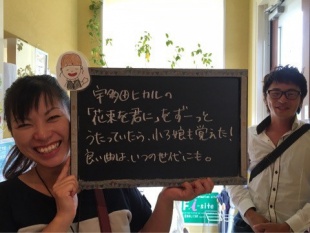 宇多田ヒカルの
「花束を君に」をずーっと
うたっていたら、小3娘も覚えた!
良い曲は、いつの世代にも。